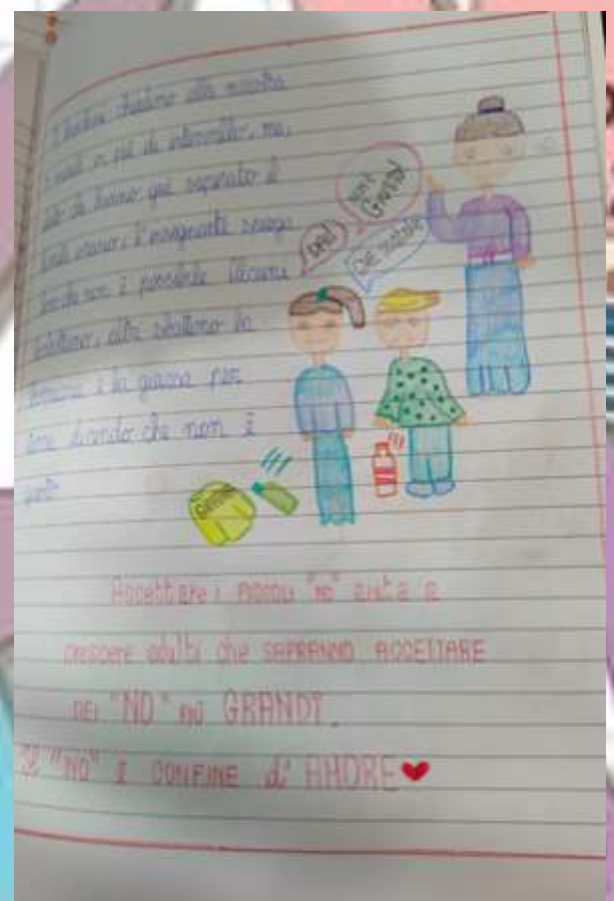 I bambini chiedono alla maestra
minuti in più di intervallo, ma,
dato che hanno già superato il
limite orario, l'insegnante spiega
loro che non è possibile. Alcuni
sbattono la
e la giacca per
dicendo che non è
giusto
DAI!
NON È GIUSTO!
CHE
Accettare i PICCOLI "no" aiuta a
crescere adulti che SAPRANNO ACCETTARE
DEI "NO" PIÙ GRANDI.
Il "NO" È CONFINE d'AMORE